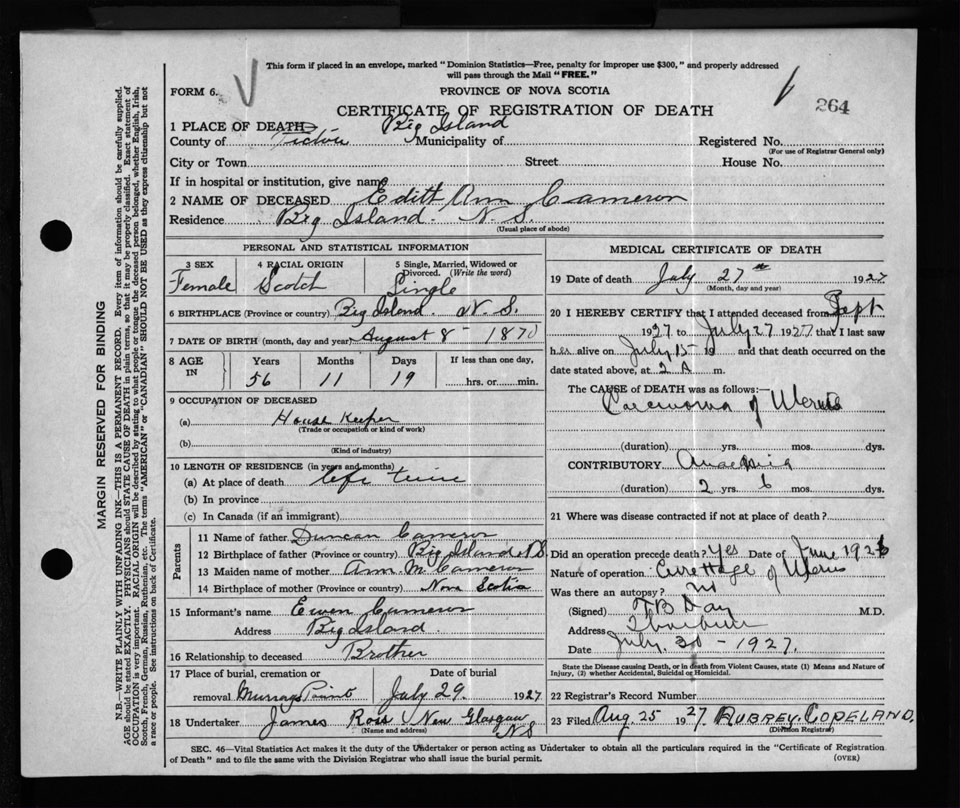 This form if placed in an envelope, marked "Dominion Statistics—Free, penalty for improper use $300," and properly addressed
will pass through the Mail "FREE."
FORM 6.
PROVINCE OF NOVA SCOTIA
264
CERTIFICATE OF REGISTRATION OF DEATH
1 PLACE OF DEATH Big Island
County of Pictou Municipality of Registered No.
(For use of Registrar General only)
City or Town Street House No.
If in hospital or institution, give name
2 NAME OF DECEASED Edith Ann Cameron
Residence Big Island N.S.
(Usual place of abode)
PERSONAL AND STATISTICAL INFORMATION
3 SEX 4 RACIAL ORIGIN 5 Single, Married, Widowed or
Divorced. (Write the word)
Female Scotch Single
6 BIRTHPLACE (Province or country) Big Island. N.S.
7 DATE OF BIRTH (month, day and year) August 8 1870
8 AGE IN Years Months Days If less than one day,
56 11 19 hrs. or min.
9 OCCUPATION OF DECEASED
(a) House Keeper
(Trade or occupation or kind of work)
(b)
(Kind of industry)
10 LENGTH OF RESIDENCE (in years and months)
(a) At place of death life time
(b) In province
(c) In Canada (if an immigrant)
Parents
11 Name of father Duncan Cameron
12 Birthplace of father (Province or country) Big Island N.S
13 Maiden name of mother Ann. M Cameron
14 Birthplace of mother (Province or country) Nova Scotia
15 Informant's name Ewen Cameron
Address Big Island.
16 Relationship to deceased Brother
17 Place of burial, cremation or Date of burial
removal Murrays Point July 29. 1927
18 Undertaker James Ross New Glasgow
(Name and address) N S
MEDICAL CERTIFICATE OF DEATH
19 Date of death July 27th 1927
(Month, day and year)
20 I HEREBY CERTIFY that I attended deceased from Sept
1927 to July 27 1927 that I last saw
her alive on July 15 19 and that death occurred on the
date stated above, at 2 A m.
The CAUSE of DEATH was as follows:—
Carcinoma of Uterus
(duration) yrs. mos. dys.
CONTRIBUTORY Anaemia
(duration) 2 yrs. 6 mos. dys.
21 Where was disease contracted if not at place of death?
Did an operation precede death? Yes Date of June 1926
Nature of operation Curettage of Uterus
Was there an autopsy? no
(Signed) M.D.
Address
Date July. 30 - 1927.
State the Disease causing Death, or in death from Violent Causes, state (1) Means and Nature of
Injury, (2) whether Accidental, Suicidal or Homicidal.
22 Registrar's Record Number
23 Filed Aug. 25 1927. AUBREY. COPELAND.
(Division Registrar)
SEC. 46—Vital Statistics Act makes it the duty of the Undertaker or person acting as Undertaker to obtain all the particulars required in the "Certificate of Registration
of Death" and to file the same with the Division Registrar who shall issue the burial permit.
(OVER)
MARGIN RESERVED FOR BINDING
N.B.—WRITE PLAINLY WITH UNFADING INK—THIS IS A PERMANENT RECORD. Every item of information should be carefully supplied.
AGE should be stated EXACTLY. PHYSICIANS should STATE CAUSE OF DEATH in plain terms, so that it may be properly classified. Exact statement of
OCCUPATION is very important. RACIAL ORIGIN will be described by stating to what people or tongue the deceased person belonged, whether English, Irish,
Scotch, French, German, Russian, Ruthenian, etc. The terms "AMERICAN" or "CANADIAN" SHOULD NOT BE USED as they express citizenship but not
a race or people. See instructions on back of Certificate.